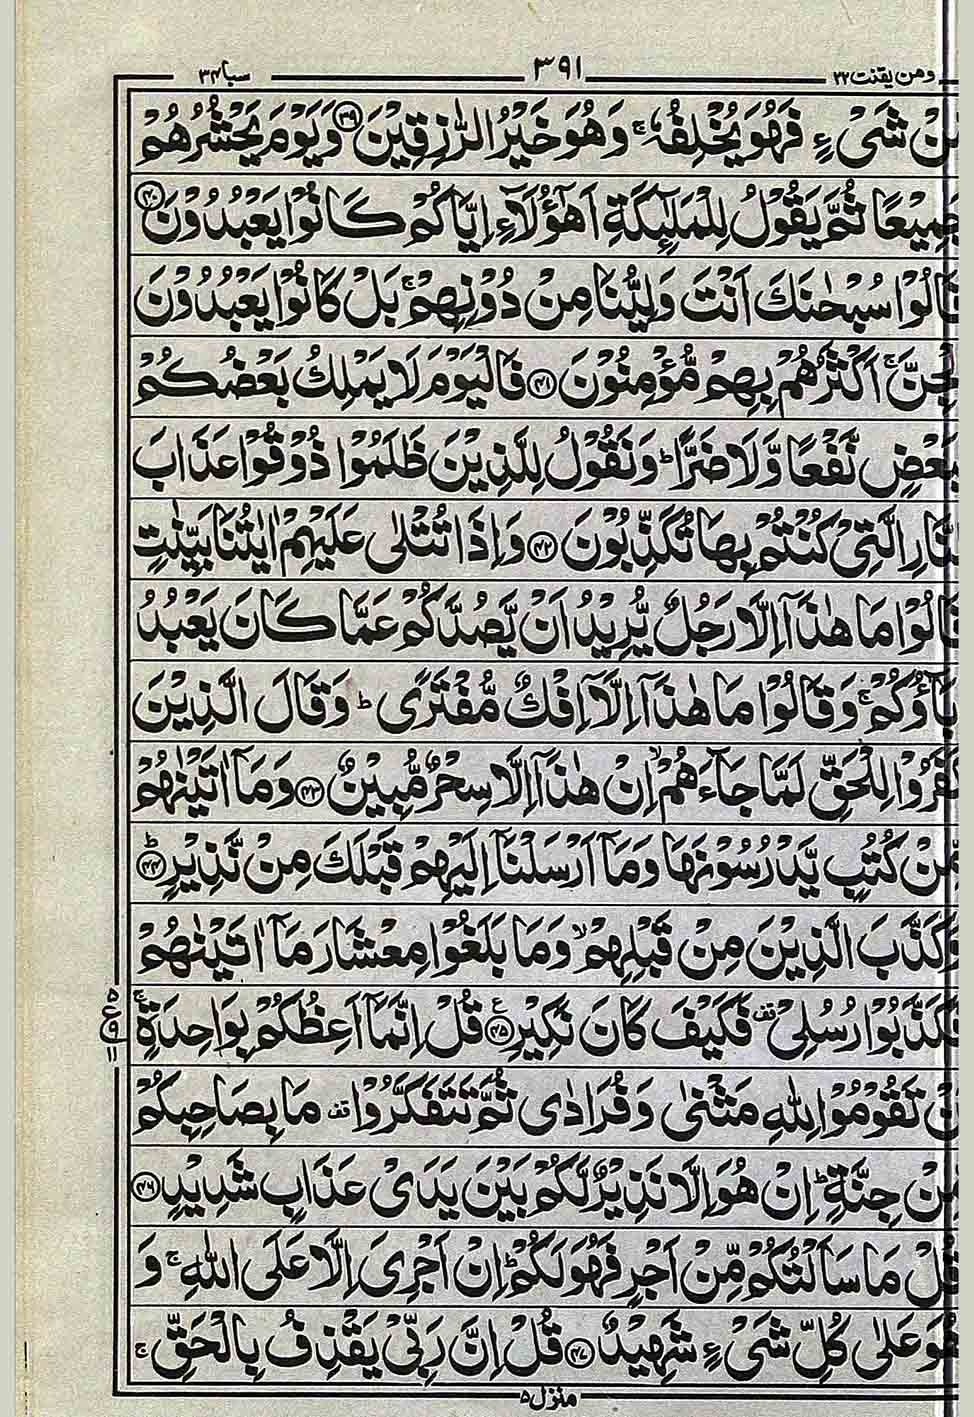 ومن یقنت ٢٢ ٣٩١ سبا ٣٤
مِّنْ شَیْءٍ فَهُوَ یُخْلِفُهٗ ۚ وَهُوَ خَیْرُ الرّٰزِقِیْنَ ﴿٣٩﴾ وَیَوْمَ یَحْشُرُهُمْ
جَمِیْعًا ثُمَّ یَقُوْلُ لِلْمَلٰٓئِكَةِ اَهٰٓؤُلَآءِ اِیَّاكُمْ كَانُوْا یَعْبُدُوْنَ ﴿٤٠﴾
قَالُوْا سُبْحٰنَكَ اَنْتَ وَلِیُّنَا مِنْ دُوْنِهِمْ ۚ بَلْ كَانُوْا یَعْبُدُوْنَ
الْجِنَّ ۚ اَكْثَرُهُمْ بِهِمْ مُّؤْمِنُوْنَ ﴿٤١﴾ فَالْیَوْمَ لَا یَمْلِكُ بَعْضُكُمْ
لِبَعْضٍ نَّفْعًا وَّلَا ضَرًّا ؕ وَنَقُوْلُ لِلَّذِیْنَ ظَلَمُوْا ذُوْقُوْا عَذَابَ
النَّارِ الَّتِیْ كُنْتُمْ بِهَا تُكَذِّبُوْنَ ﴿٤٢﴾ وَاِذَا تُتْلٰی عَلَیْهِمْ اٰیٰتُنَا بَیِّنٰتٍ
قَالُوْا مَا هٰذَاۤ اِلَّا رَجُلٌ یُّرِیْدُ اَنْ یَّصُدَّكُمْ عَمَّا كَانَ یَعْبُدُ
اٰبَآؤُكُمْ ۚ وَقَالُوْا مَا هٰذَاۤ اِلَّاۤ اِفْكٌ مُّفْتَرًی ؕ وَقَالَ الَّذِیْنَ
كَفَرُوْا لِلْحَقِّ لَمَّا جَآءَهُمْ ۙ اِنْ هٰذَاۤ اِلَّا سِحْرٌ مُّبِیْنٌ ﴿٤٣﴾ وَمَاۤ اٰتَیْنٰهُمْ
مِّنْ كُتُبٍ یَّدْرُسُوْنَهَا وَمَاۤ اَرْسَلْنَاۤ اِلَیْهِمْ قَبْلَكَ مِنْ نَّذِیْرٍ ﴿٤٤﴾ؕ
وَكَذَّبَ الَّذِیْنَ مِنْ قَبْلِهِمْ ۙ وَمَا بَلَغُوْا مِعْشَارَ مَاۤ اٰتَیْنٰهُمْ
فَكَذَّبُوْا رُسُلِیْ قف فَكَیْفَ كَانَ نَكِیْرِ ﴿٤٥﴾ ع قُلْ اِنَّمَاۤ اَعِظُكُمْ بِوَاحِدَةٍ ۚ
٥ ع ٩ ١١
اَنْ تَقُوْمُوْا لِلّٰهِ مَثْنٰی وَفُرَادٰی ثُمَّ تَتَفَكَّرُوْا قف مَا بِصَاحِبِكُمْ
مِّنْ جِنَّةٍ ؕ اِنْ هُوَ اِلَّا نَذِیْرٌ لَّكُمْ بَیْنَ یَدَیْ عَذَابٍ شَدِیْدٍ ﴿٤٦﴾
قُلْ مَا سَاَلْتُكُمْ مِّنْ اَجْرٍ فَهُوَ لَكُمْ ؕ اِنْ اَجْرِیَ اِلَّا عَلَی اللّٰهِ ۚ وَ
هُوَ عَلٰی كُلِّ شَیْءٍ شَهِیْدٌ ﴿٤٧﴾ قُلْ اِنَّ رَبِّیْ یَقْذِفُ بِالْحَقِّ ۚ
منزل ٥